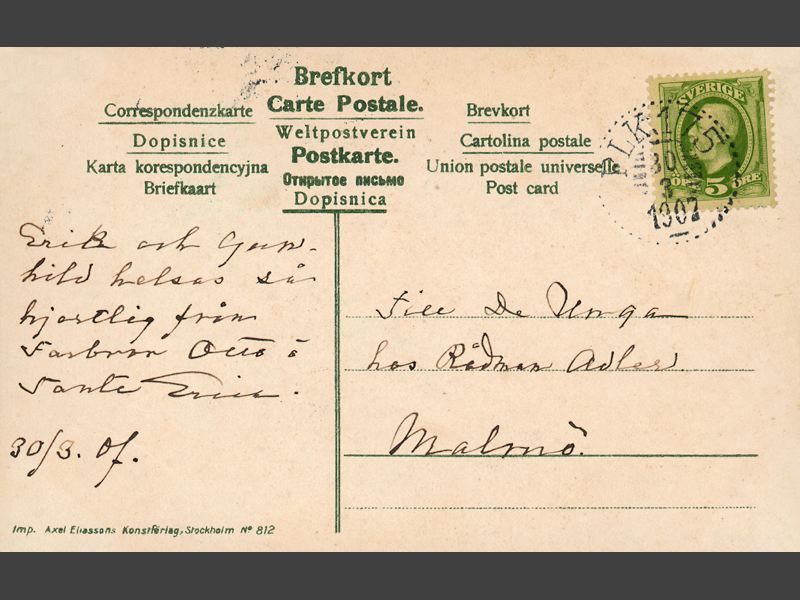 Brefkort
Carte Postale.
Weltpostverein
Postkarte.
Открытое письмо
Dopisnica
Correspondenzkarte
Dopisnice
Karta korespondencyjna
Briefkaart
Brevkort
Cartolina postale
Union postale universelle
Post card
SVERIGE
ÖRE 5 ÖRE
30
3
1907
Erik och Gun-
hild helsas så
hjertlig från
Farbror Otto o
Tante Erica.
30/3. 07.
Till De Unga
hos Rådman Adler
Malmö.
Imp. Axel Eliassons Konstförlag, Stockholm No 812